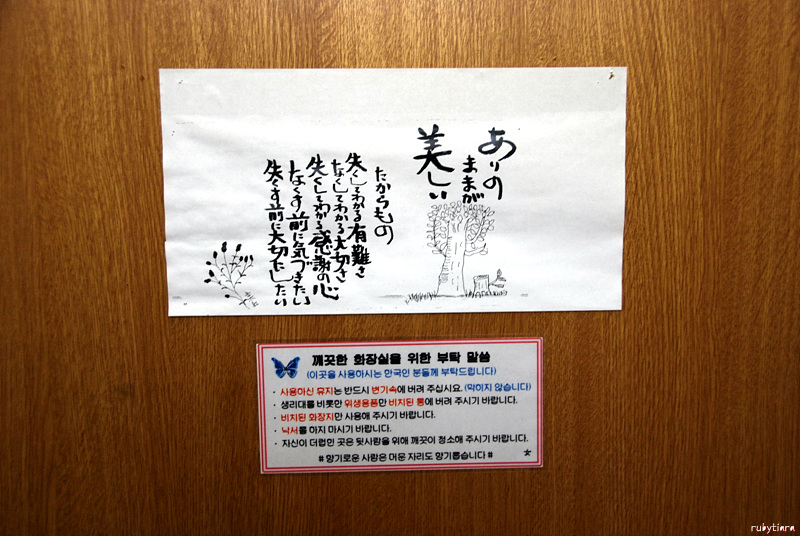 ありの
ままが
美しい
たからもの
失くしてわかる有難さ
なくしてわかる大切さ
失くしてわかる感謝の心
なくす前に気づきたい
失くす前に大切にしたい
깨끗한 화장실을 위한 부탁 말씀
(이곳을 사용하시는 한국인 분들께 부탁드립니다)
· 사용하신 휴지는 반드시 변기속에 버려 주십시요. (막히지 않습니다)
· 생리대를 비롯한 위생용품만 비치된 통에 버려 주시기 바랍니다.
· 비치된 화장지만 사용해 주시기 바랍니다.
· 낙서를 하지 마시기 바랍니다.
· 자신이 더럽힌 곳은 뒷사람을 위해 깨끗이 청소해 주시기 바랍니다.
# 향기로운 사람은 머문 자리도 향기롭습니다 #
rubytiara